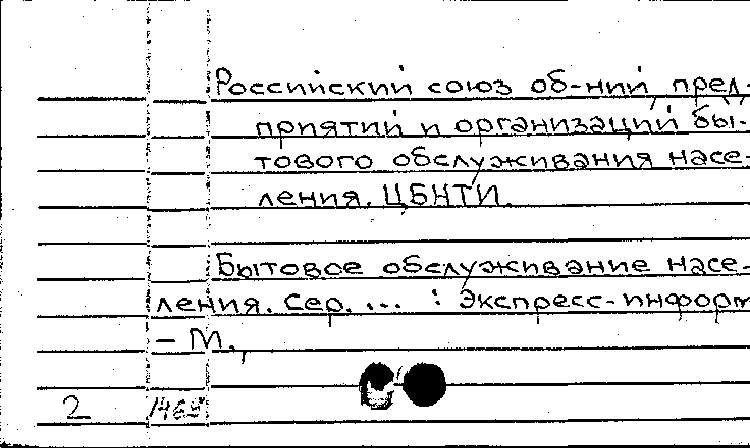 Российский союз об-ний, пред-
приятий и организаций бы-
тового обслуживания насе-
ления. ЦБНТИ.
Бытовое обслуживание насе-
ления. Сер. ... : Экспресс-информ
- М.,
2